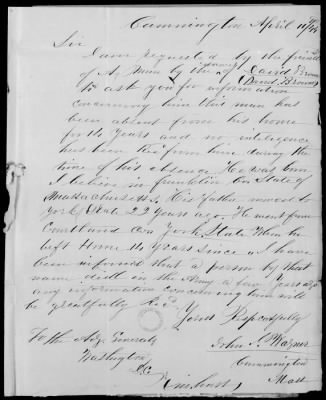 Cummington April 11th
Sir
I am requested by the friends
of A Man by the name of David Brown
(David Brown)
to ask you for information
concerning him this man has
been absent from his home
for 14 Years and no inteligence
has been Recd from him during the
time of his absence He was born
I believe in franklin Co State of
Massachusets. His father moved to
York State 22 Years ago. He went from
Courtland Co York State When he
left Home 14 Years since. I have
been informed that a person by that
name died in the Army a few years ago
any information concerning him will
be greatfully Recd
Yours Respectfully
John S. Warner
Cummington
Mass
To the Adj. General
Washington
D.C.